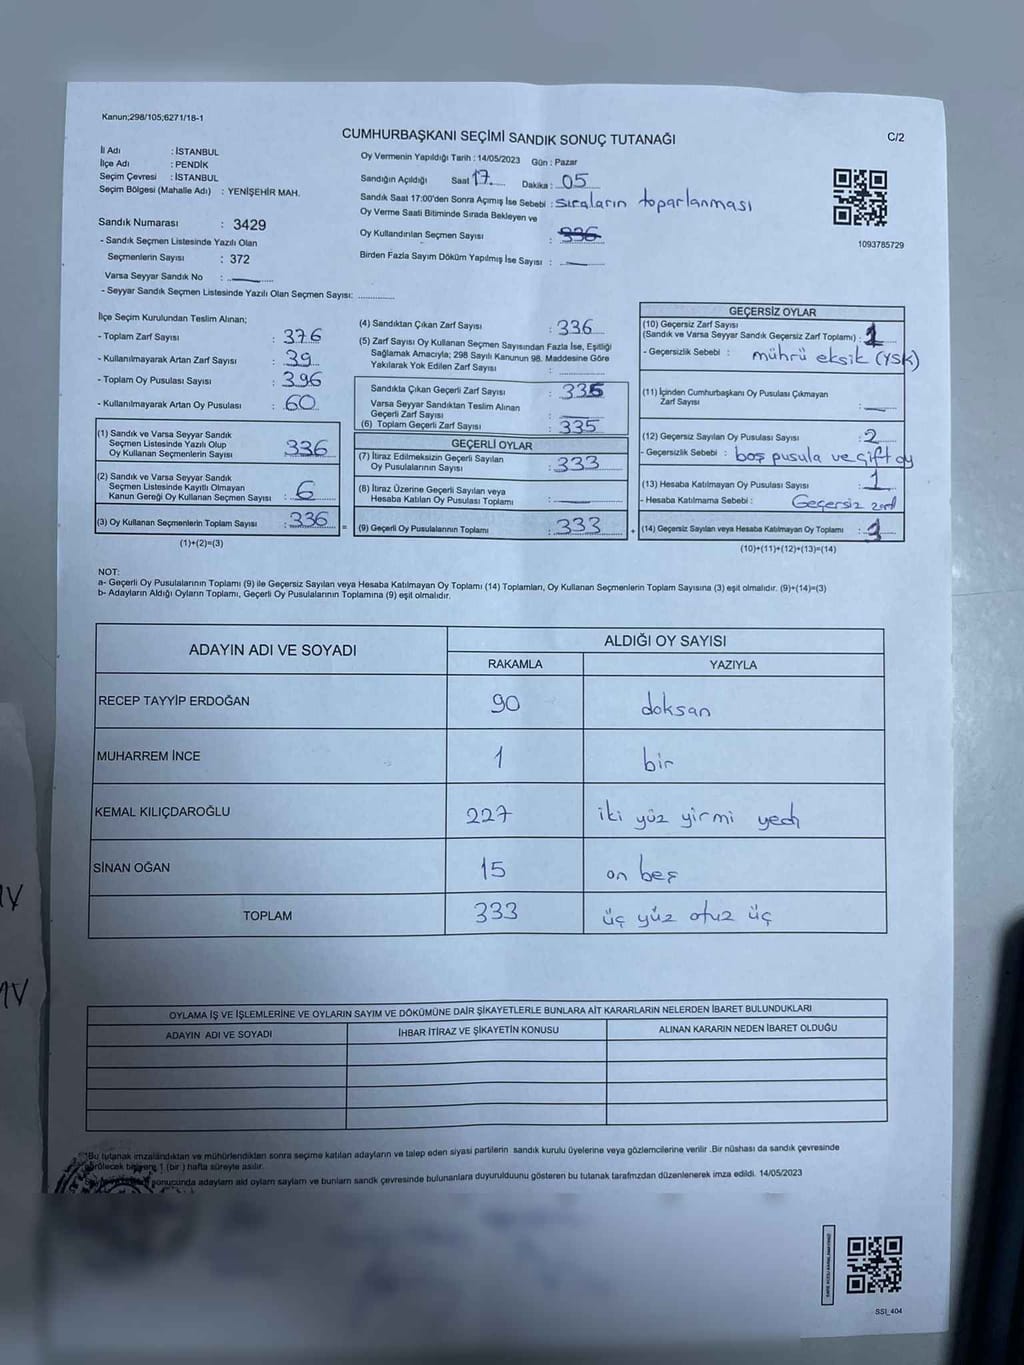 Kanun;298/105;6271/18-1
CUMHURBAŞKANI SEÇİMİ SANDIK SONUÇ TUTANAĞI
C/2
İl Adı : İSTANBUL
İlçe Adı : PENDİK
Seçim Çevresi : İSTANBUL
Seçim Bölgesi (Mahalle Adı) : YENİŞEHİR MAH.
Sandık Numarası : 3429
- Sandık Seçmen Listesinde Yazılı Olan
Seçmenlerin Sayısı : 372
Varsa Seyyar Sandık No :
- Seyyar Sandık Seçmen Listesinde Yazılı Olan Seçmen Sayısı:
Oy Vermenin Yapıldığı Tarih : 14/05/2023 Gün : Pazar
Sandığın Açıldığı Saat 17 Dakika : 05
Sandık Saat 17:00'den Sonra Açımış İse Sebebi : sıraların toparlanması
Oy Verme Saati Bitiminde Sırada Bekleyen ve
Oy Kullandırılan Seçmen Sayısı : 336
Birden Fazla Sayım Döküm Yapılmış İse Sayısı :
1093785729
İlçe Seçim Kurulundan Teslim Alınan;
- Toplam Zarf Sayısı : 376
- Kullanılmayarak Artan Zarf Sayısı : 39
- Toplam Oy Pusulası Sayısı : 396
- Kullanılmayarak Artan Oy Pusulası : 60
(1) Sandık ve Varsa Seyyar Sandık
Seçmen Listesinde Yazılı Olup
Oy Kullanan Seçmenlerin Sayısı 336
(2) Sandık ve Varsa Seyyar Sandık
Seçmen Listesinde Kayıtlı Olmayan
Kanun Gereği Oy Kullanan Seçmen Sayısı : 6
(3) Oy Kullanan Seçmenlerin Toplam Sayısı : 336 =
(1)+(2)=(3)
(4) Sandıktan Çıkan Zarf Sayısı : 336
(5) Zarf Sayısı Oy Kullanan Seçmen Sayısından Fazla İse, Eşitliği
Sağlamak Amacıyla; 298 Sayılı Kanunun 98. Maddesine Göre
Yakılarak Yok Edilen Zarf Sayısı :
Sandıkta Çıkan Geçerli Zarf Sayısı : 335
Varsa Seyyar Sandıktan Teslim Alınan
Geçerli Zarf Sayısı :
(6) Toplam Geçerli Zarf Sayısı : 335
GEÇERLİ OYLAR
(7) İtiraz Edilmeksizin Geçerli Sayılan
Oy Pusulalarının Sayısı : 333
(8) İtiraz Üzerine Geçerli Sayılan veya
Hesaba Katılan Oy Pusulası Toplamı :
(9) Geçerli Oy Pusulalarının Toplamı : 333 +
GEÇERSİZ OYLAR
(10) Geçersiz Zarf Sayısı
(Sandık ve Varsa Seyyar Sandık Geçersiz Zarf Toplamı) : 1
- Geçersizlik Sebebi : mührü eksik (YSK)
(11) İçinden Cumhurbaşkanı Oy Pusulası Çıkmayan
Zarf Sayısı :
(12) Geçersiz Sayılan Oy Pusulası Sayısı : 2
- Geçersizlik Sebebi : boş pusula ve çift oy
(13) Hesaba Katılmayan Oy Pusulası Sayısı : 1
- Hesaba Katılmama Sebebi : Geçersiz zarf
(14) Geçersiz Sayılan veya Hesaba Katılmayan Oy Toplamı : 3
(10)+(11)+(12)+(13)=(14)
NOT:
a- Geçerli Oy Pusulalarının Toplamı (9) ile Geçersiz Sayılan veya Hesaba Katılmayan Oy Toplamı (14) Toplamları, Oy Kullanan Seçmenlerin Toplam Sayısına (3) eşit olmalıdır. (9)+(14)=(3)
b- Adayların Aldığı Oyların Toplamı, Geçerli Oy Pusulalarının Toplamına (9) eşit olmalıdır.
ADAYIN ADI VE SOYADI
ALDIĞI OY SAYISI
RAKAMLA YAZIYLA
RECEP TAYYİP ERDOĞAN 90 doksan
MUHARREM İNCE 1 bir
KEMAL KILIÇDAROĞLU 227 iki yüz yirmi yedi
SİNAN OĞAN 15 on beş
TOPLAM 333 üç yüz otuz üç
OYLAMA İŞ VE İŞLEMLERİNE VE OYLARIN SAYIM VE DÖKÜMÜNE DAİR ŞİKAYETLERLE BUNLARA AİT KARARLARIN NELERDEN İBARET BULUNDUKLARI
ADAYIN ADI VE SOYADI İHBAR İTİRAZ VE ŞİKAYETİN KONUSU ALINAN KARARIN NEDEN İBARET OLDUĞU
Bu tutanak imzalandıktan ve mühürlendikten sonra seçime katılan adayların ve talep eden siyasi partilerin sandık kurulu üyelerine veya gözlemcilerine verilir .Bir nüshası da sandık çevresinde
görülecek bir yere 1 (bir ) hafta süreyle asılır.
sonucunda adayların ald oyların sayların ve bunların sandk çevresinde bulunanlara duyurulduunu gösteren bu tutanak tarafmzdan düzenlenerek imza edildi. 14/05/2023
SSI_404